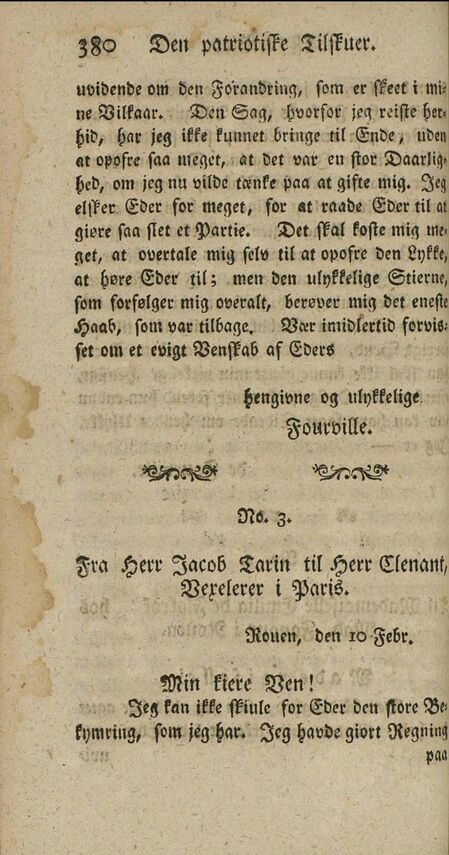 380 Den patriotiske Tilskuer.
uvidende om den Forandring, som er skeet i mi-
ne Vilkaar. Den Sag, hvorfor jeg reiste her-
hid, har jeg ikke kunnet bringe til Ende, uden
at opofre saa meget, at det var en stor Daarlig-
hed, om jeg nu vilde tænke paa at gifte mig. Jeg
elsker Eder for meget, for at raade Eder til at
giøre saa slet et Partie. Det skal koste mig me-
get, at overtale mig selv til at opofre den Lykke,
at høre Eder til; men den ulykkelige Stierne,
som forfølger mig overalt, berøver mig det eneste
Haab, som var tilbage. Vær imidlertid forvis-
set om et evigt Venskab af Eders
hengivne og ulykkelige
Fourville.
No. 3.
Fra Herr Jacob Tarin til Herr Clenant,
Vexelerer i Paris.
Rouen, den 10 Febr.
Min kiere Ven!
Jeg kan ikke skiule for Eder den store Be-
kymring, som jeg har. Jeg havde giort Regning
paa